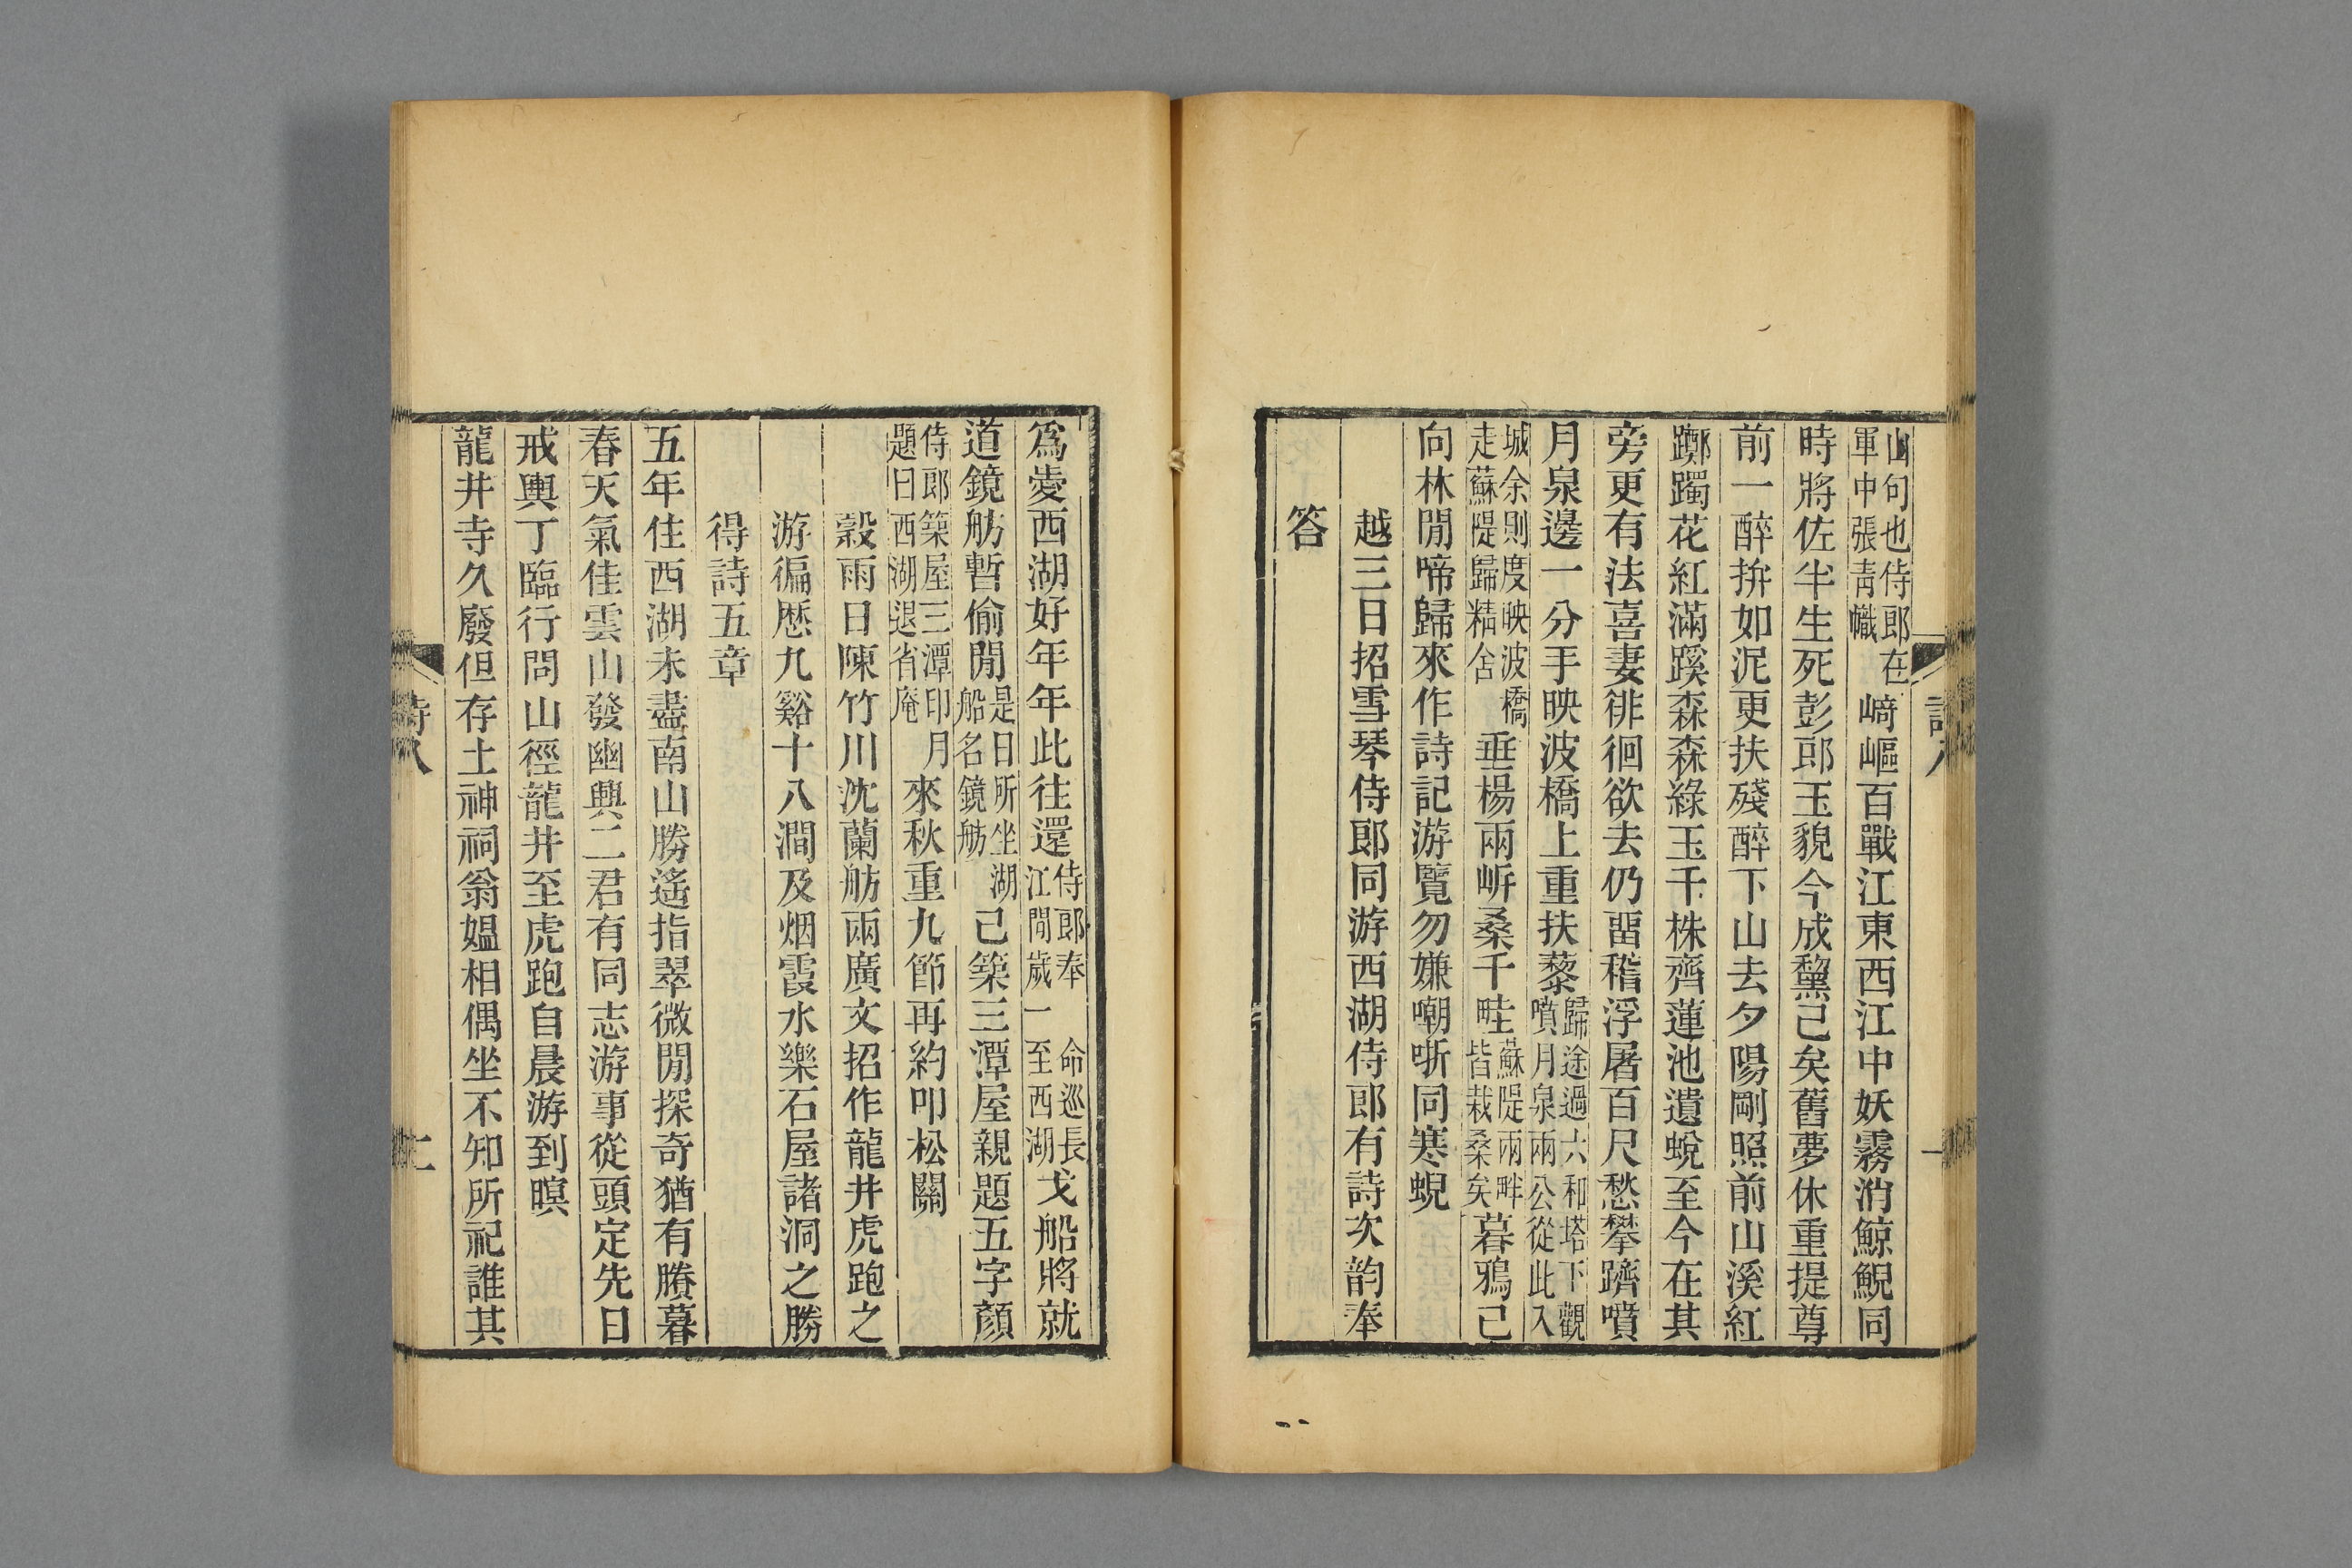 山句也侍郎在軍中張青幟崎嶇百戰江東西江中妖霧消鯨鯢同
時將佐半生死彭郎玉貌今成黧已矣舊夢休重提尊
前一醉拚如泥更扶殘醉下山去夕陽剛照前山溪紅
躑躅花紅滿蹊森森綠玉千株齊蓮池遺蛻至今在其
旁更有法喜妻徘徊欲去仍畱稽浮屠百尺愁攀躋噴
月泉邊一分手映波橋上重扶藜歸途過六和塔下觀噴月泉兩公從此入
城余則度映波橋走蘇隄歸精舍垂楊兩岸桑千畦蘇隄兩畔皆栽桑矣暮鴉已
向林閒啼歸來作詩記游覽勿嫌嘲哳同寒蜺
越三日招雪琴侍郎同游西湖侍郎有詩次韵奉
答
詩八
爲愛西湖好年年此往還侍郎奉 命巡長江閒歲一至西湖戈船將就
道鏡舫暫偷閒是日所坐湖船名鏡舫已築三潭屋親題五字顏
侍郎築屋三潭印月題曰西湖退省庵來秋重九節再約叩松關
穀雨日陳竹川沈蘭舫兩廣文招作龍井虎跑之
游徧歷九谿十八澗及烟霞水樂石屋諸洞之勝
得詩五章
五年住西湖未盡南山勝遙指翠微閒探奇猶有賸暮
春天氣佳雲山發幽興二君有同志游事從頭定先日
戒輿丁臨行問山徑龍井至虎跑自晨游到暝
龍井寺久廢但存土神祠翁媼相偶坐不知所祀誰其
詩八